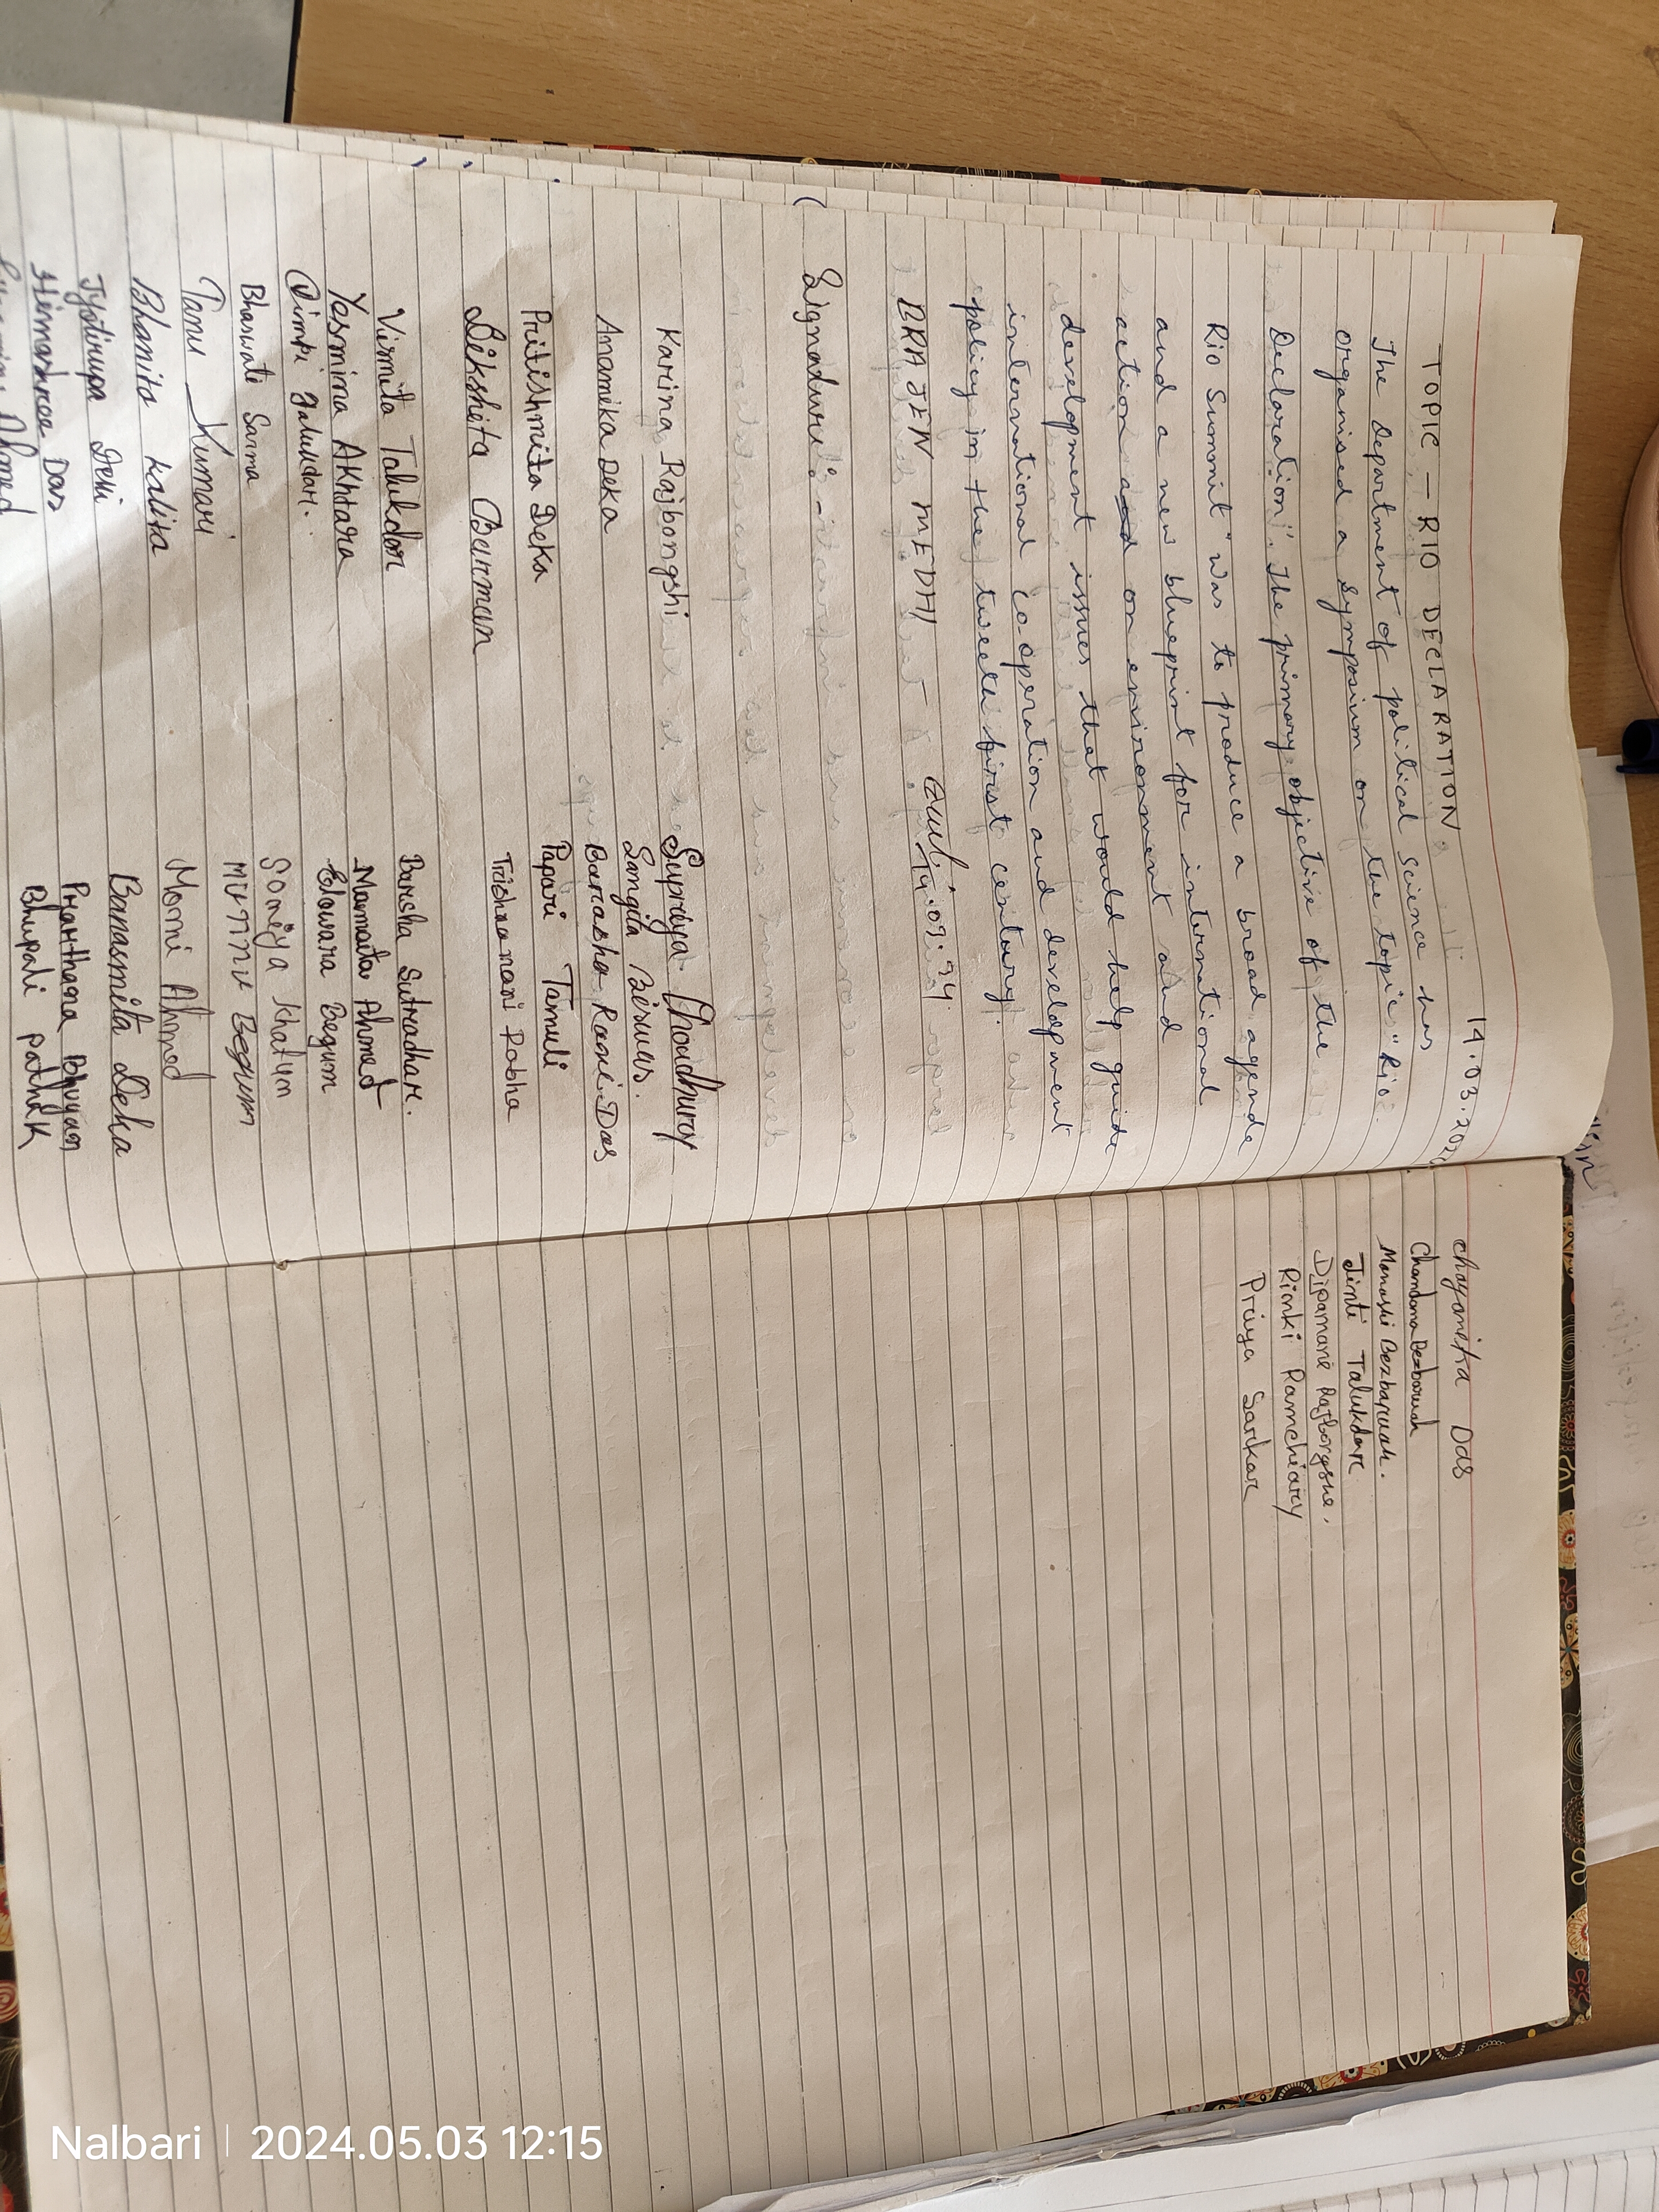 14.03.202
TOPIC — RIO DECLARATION
The Department of political science has
organised a symposium on the topic "Rio
Declaration". The primary objective of the
Rio Summit" was to produce a broad agenda
and a new blueprint for international
action and on environment and
development issues that would help guide
international co-operation and development
policy in the tweeta first century.
BRAJEN MEDHI
14.03.24
Signature :-
Karina Rajbongshi
Anamika Deka
Pritishmita Deka
Dikshita Barman
Vismita Talukdar
Yasmina Akhtara
Dimpi Talukdar.
Bhaswati Sarma
Tanu Kumari
Bhanita Kalita
Jyotirupa Devi
Himashree Das
Ahmed
Supriya Choudhury
Sangita Biswas.
Barasha Rani Das
Papari Tamuli
Trishnamani Rabha
Barsha Sutradhar.
Mamata Ahmed
Elowara Begum
Soniya Khatun
Munnu Begum
Moni Ahmed
Banasmita Deka
Prarthana Bhuyan
Bhupali Pathak
Chayanika Das
Chandana Bezbaruah
Manashi Bezbaruah.
Jinti Talukdar
Dipamani Rajbongshi.
Rinki Ramchiary
Priya Sarkar
Nalbari | 2024.05.03 12:15